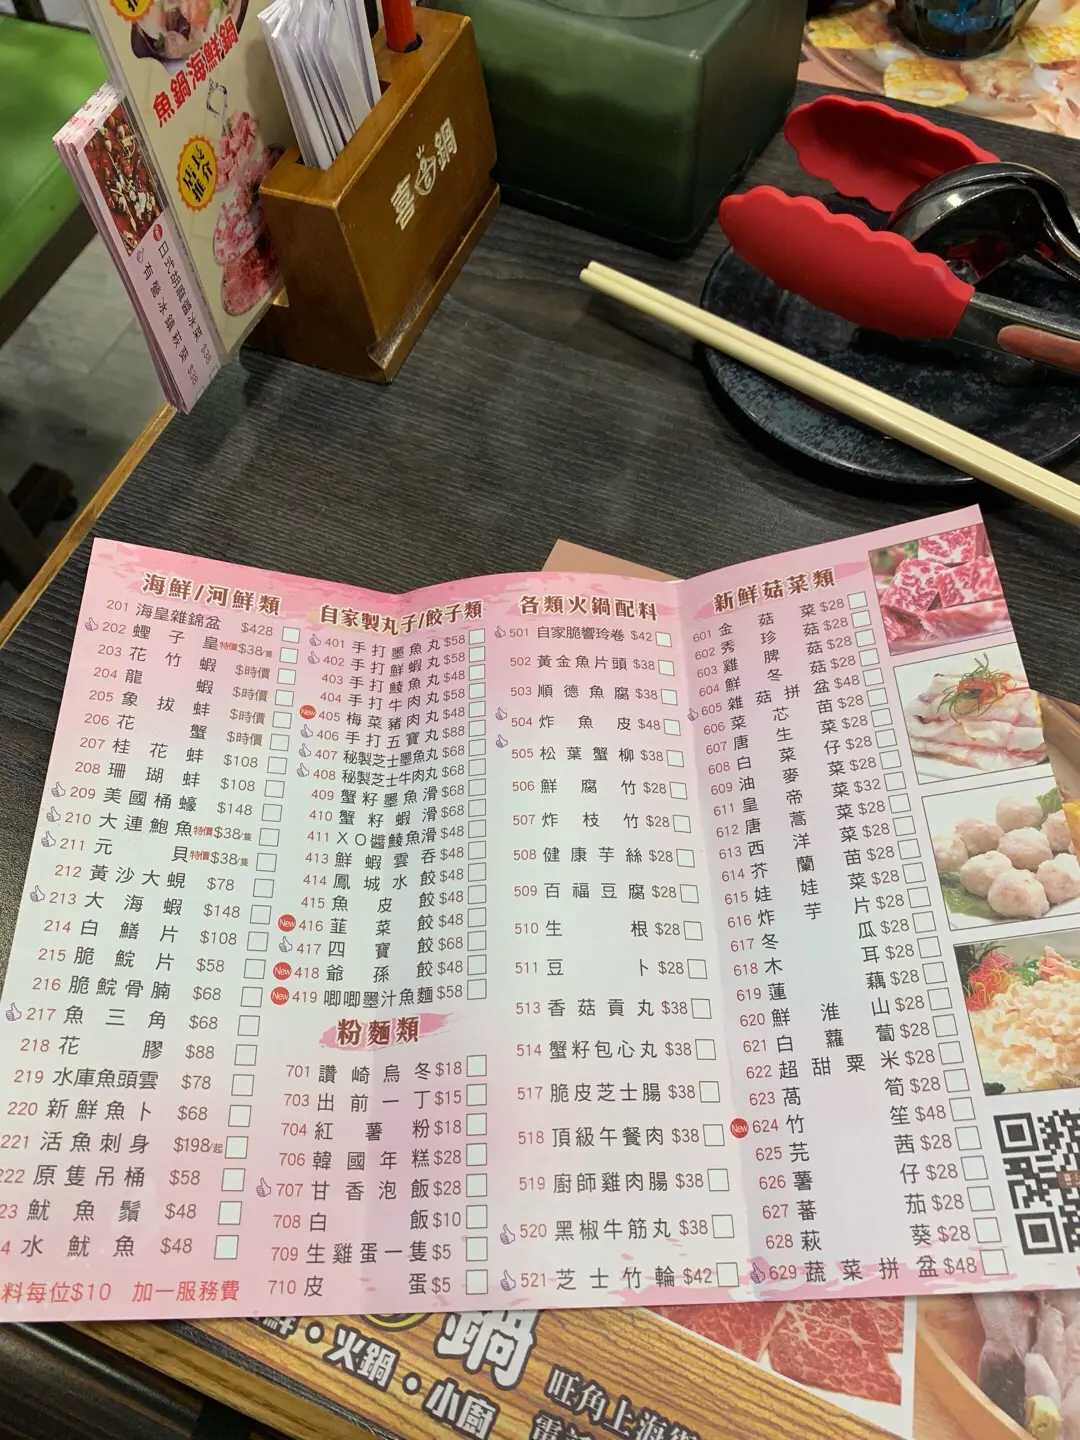 魚鍋海鮮鍋
店長推介
喜尚鍋
海鮮/河鮮類
201 海皇雜錦盆 $428
202 蟶子皇 特價$38/隻
203 花竹蝦 $時價
204 龍蝦 $時價
205 象拔蚌 $時價
206 花蟹 $時價
207 桂花蚌 $108
208 珊瑚蚌 $108
209 美國桶蠔 $148
210 大連鮑魚 特價$38/隻
211 元貝 特價$38/隻
212 黃沙大蜆 $78
213 大海蝦 $148
214 白鱔片 $108
215 脆鯇片 $58
216 脆鯇骨腩 $68
217 魚三角 $68
218 花膠 $88
219 水庫魚頭雲 $78
220 新鮮魚卜 $68
221 活魚刺身 $198/起
222 原隻吊桶 $58
23 魷魚鬚 $48
4 水魷魚 $48
料每位$10 加一服務費
自家製丸子/餃子類
401 手打墨魚丸 $58
402 手打鮮蝦丸 $58
403 手打鯪魚丸 $48
404 手打牛肉丸 $58
New 405 梅菜豬肉丸 $48
406 手打五寶丸 $88
407 秘製芝士墨魚丸 $68
408 秘製芝士牛肉丸 $68
409 蟹籽墨魚滑 $68
410 蟹籽蝦滑 $68
411 XO醬鯪魚滑 $48
413 鮮蝦雲吞 $48
414 鳳城水餃 $48
415 魚皮餃 $48
New 416 韮菜餃 $48
417 四寶餃 $68
New 418 爺孫餃 $48
New 419 唧唧墨汁魚麵 $58
粉麵類
701 讚崎烏冬 $18
703 出前一丁 $15
704 紅薯粉 $18
706 韓國年糕 $28
707 甘香泡飯 $28
708 白飯 $10
709 生雞蛋一隻 $5
710 皮蛋 $5
各類火鍋配料
501 自家脆響玲卷 $42
502 黃金魚片頭 $38
503 順德魚腐 $38
504 炸魚皮 $48
505 松葉蟹柳 $38
506 鮮腐竹 $28
507 炸枝竹 $28
508 健康芋絲 $28
509 百福豆腐 $28
510 生根 $28
511 豆卜 $28
513 香菇貢丸 $38
514 蟹籽包心丸 $38
517 脆皮芝士腸 $38
518 頂級午餐肉 $38
519 廚師雞肉腸 $38
520 黑椒牛筋丸 $38
521 芝士竹輪 $42
新鮮菇菜類
601 金菇 $28
602 秀珍菇 $28
603 雞脾菇 $28
604 鮮冬菇 $28
605 雜菇拼盆 $48
606 菜芯苗 $28
607 唐生菜 $28
608 白菜仔 $28
609 油麥菜 $28
611 皇帝菜 $32
612 唐蒿菜 $28
613 西洋菜 $28
614 芥蘭苗 $28
615 娃娃菜 $28
616 炸芋片 $28
617 冬瓜 $28
618 木耳 $28
619 蓮藕 $28
620 鮮淮山 $28
621 白蘿蔔 $28
622 超甜粟米 $28
623 萵筍 $28
New 624 竹笙 $48
625 芫茜 $28
626 薯仔 $28
627 蕃茄 $28
628 萩葵 $28
629 蔬菜拼盆 $48
鍋
鮮・火鍋・小廚
旺角上海街